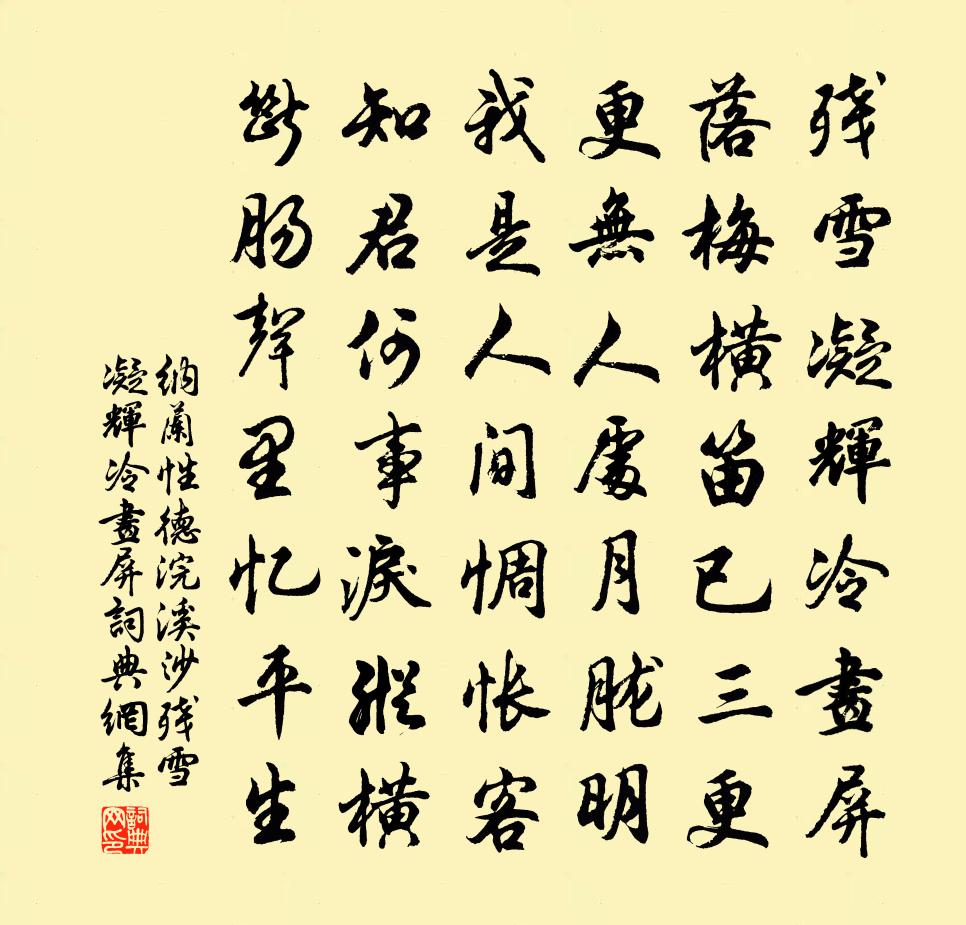 残雪凝輝冷畫屏
落梅橫笛已三更
更無人處月胧明
我是人间惆怅客
知君何事淚縱橫
斷肠聲里忆平生
納蘭性德浣溪沙残雪
凝輝冷畫屏詞典網集
詞典网印